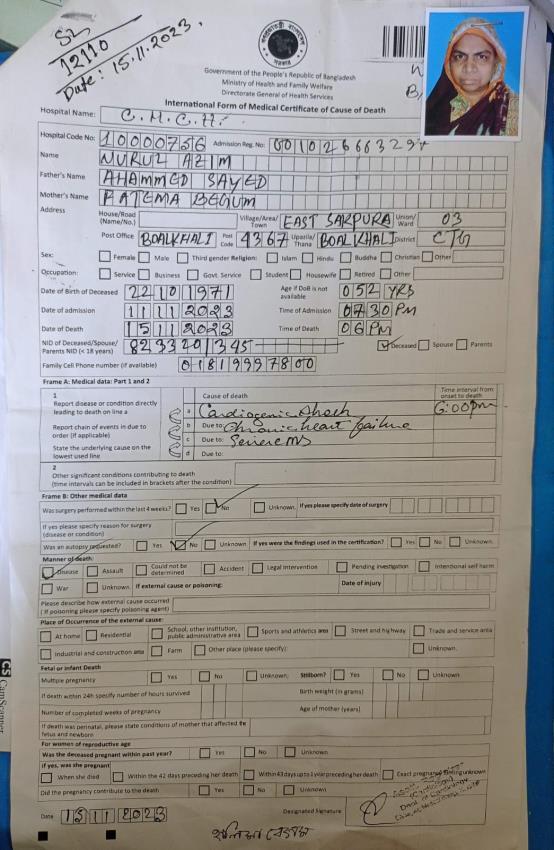 SL
12110
Date: 15.11.2023.
গণপ্রজাতন্ত্রী বাংলাদেশ সরকার
Government of the People's Republic of Bangladesh
Ministry of Health and Family Welfare
Directorate General of Health Services
International Form of Medical Certificate of Cause of Death
Hospital Name: C.M.C.H.
Hospital Code No: 10000756 Admission Reg. No:
Name NURUL AZIM
Father's Name AHAMMED SAYED
Mother's Name FATEMA BEGUM
Address House/Road (Name/No.) Village/Area/Town EAST SARPURA Union/Ward 03
Post Office BOALKHALI Post Code 4367 Upazila/Thana BOALKHALI District CTG
Sex: Female Male Third gender Religion: Islam Hindu Buddha Christian Other
Occupation: Service Business Govt. Service Student Housewife Retired Other
Date of Birth of Deceased 22101971 Age if DoB is not available 052 YRS
Date of admission 11112023 Time of Admission 0730PM
Date of Death 15112023 Time of Death 06PM
NID of Deceased/Spouse/Parents NID (< 18 years) 8233201345 Deceased Spouse Parents
Family Cell Phone number (if available) 01819997800
Frame A: Medical data: Part 1 and 2
1 Cause of death Time interval from onset to death
Report disease or condition directly leading to death on line a a Cardiogenic Shock 6:00pm
Report chain of events in due to order (if applicable) b Due to: Chronic heart failure
c Due to: Severe MS
State the underlying cause on the lowest used line d Due to:
2
Other significant conditions contributing to death
(time intervals can be included in brackets after the condition)
Frame B: Other medical data
Was surgery performed within the last 4 weeks? Yes No Unknown If yes please specify date of surgery
If yes please specify reason for surgery (disease or condition)
Was an autopsy requested? Yes No Unknown If yes were the findings used in the certification? Yes No Unknown
Manner of death:
Disease Assault Could not be determined Accident Legal intervention Pending investigation Intentional self harm
War Unknown If external cause or poisoning: Date of injury
Please describe how external cause occurred
(If poisoning please specify poisoning agent)
Place of Occurrence of the external cause:
At home Residential School, other institution, public administrative area Sports and athletics area Street and highway Trade and service area
Industrial and construction area Farm Other place (please specify): Unknown
Fetal or infant Death
Multiple pregnancy Yes No Unknown Stillborn? Yes No Unknown
If death within 24h specify number of hours survived Birth weight (in grams)
Number of completed weeks of pregnancy Age of mother (years)
If death was perinatal, please state conditions of mother that affected the fetus and newborn
For women of reproductive age
Was the deceased pregnant within past year? Yes No Unknown
If yes, was she pregnant
When she died Within the 42 days preceding her death Within 43 days up to 1 year preceding her death Exact pregnancy timing unknown
Did the pregnancy contribute to the death Yes No Unknown
Date 15112023 Designated Signature
CS CamScanner